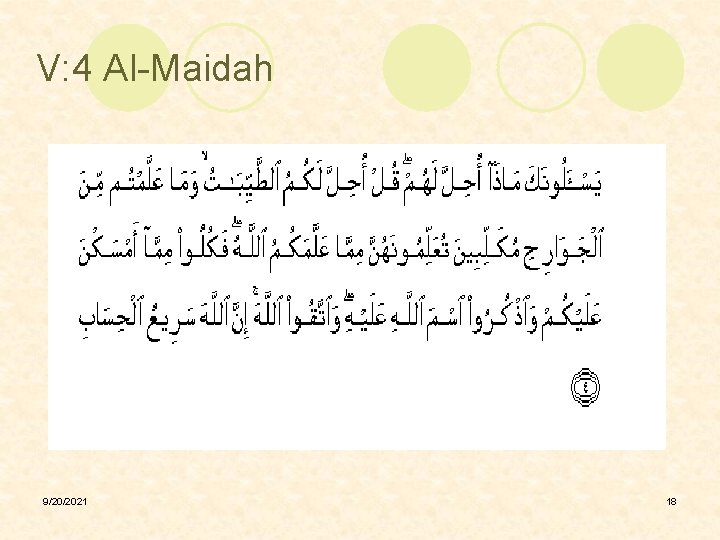 V: 4 Al-Maidah
يَسْـَٔلُونَكَ مَاذَآ أُحِلَّ لَهُمْ ۖ قُلْ أُحِلَّ لَكُمُ ٱلطَّيِّبَـٰتُ ۙ وَمَا عَلَّمْتُم مِّنَ
ٱلْجَوَارِحِ مُكَلِّبِينَ تُعَلِّمُونَهُنَّ مِمَّا عَلَّمَكُمُ ٱللَّهُ ۖ فَكُلُوا۟ مِمَّآ أَمْسَكْنَ
عَلَيْكُمْ وَٱذْكُرُوا۟ ٱسْمَ ٱللَّهِ عَلَيْهِ ۖ وَٱتَّقُوا۟ ٱللَّهَ ۚ إِنَّ ٱللَّهَ سَرِيعُ ٱلْحِسَابِ
٤
9/20/2021 18